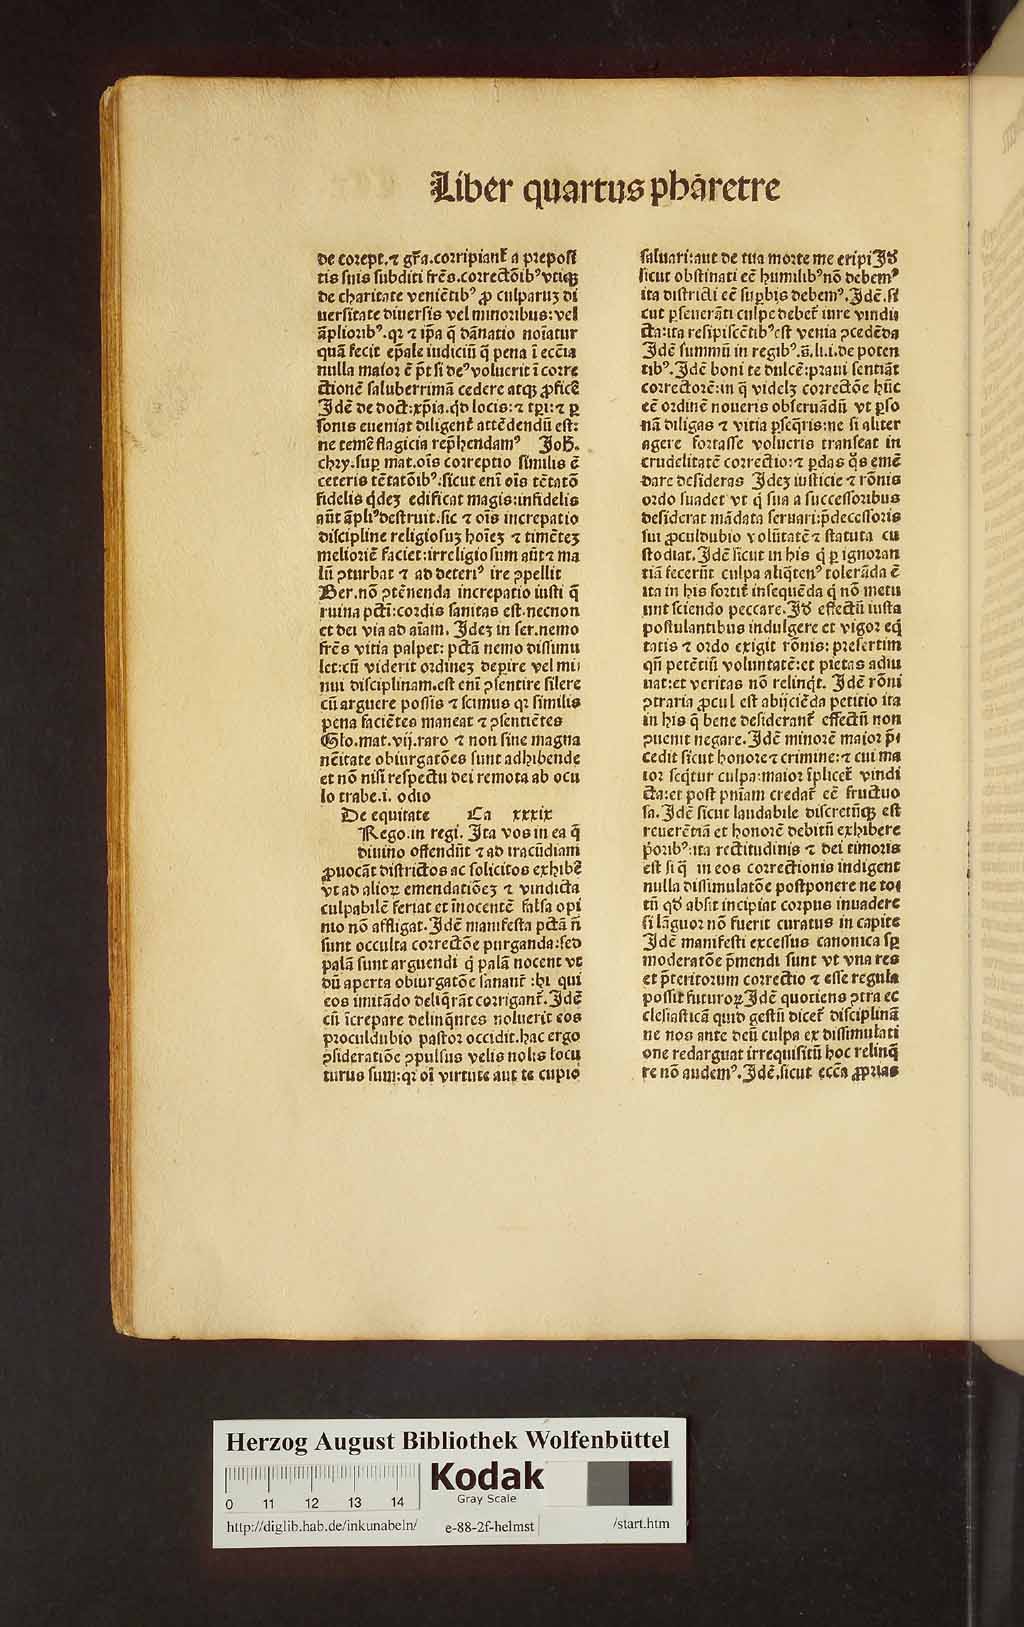 Liber quartus pharetre
de corept.⁊ gr̄a.corripiant᷑ a preposi
tis suis subditi fr̄es.correctōib⁹ vtiqꝫ
de charitate veniētib⁹ ꝓ culparuꝫ di
uersitate diuersis vel minoribus:vel
āpliorib⁹.qꝛ ⁊ ip̄a q̄ dānatio noīatur
quā fecit ep̄ale iudiciū q̄ pena ī ecc̄ia
nulla maior ē p̄t si de⁹ voluerit ī corre
ctionē saluberrimā cedere atqꝫ ꝓficē
Idē de doct.xp̄ia.qd̄ locis:⁊ tp̄i:⁊ ꝑ
sonis eueniat diligent᷑ attēdendū est:
ne temē flagicia rep̄hendam⁹ Joh̄.
chry.suꝑ mat.oīs correptio similis ē
ceteris tētatōib⁹:sicut eni oīs tētatō
fidelis q̇deꝫ edificat magis:infidelis
aūt āpli⁹ destruit.sic ⁊ oīs increpatio
discipline religiosuꝫ hoīeꝫ ⁊ timēteꝫ
meliorē faciet:irreligiosum aūt ⁊ ma
lū ꝯturbat ⁊ ad deteri⁹ ire ꝯpellit
Ber.nō ꝯtēnenda increpatio iusti q̄
ruina pctī:cordis sanitas est.necnon
et dei via ad aīam. Ideꝫ in ser.nemo
fr̄es vitia palpet: pctā nemo dissimu
let:cū viderit ordineꝫ deꝑire vel mi
nui disciplinam.est enī ꝯsentire silere
cū arguere possis ⁊ scimus qꝛ similis
pena faciētes maneat ⁊ ꝯsentiētes
Glo.mat.vij.raro ⁊ non sine magna
nēitate obiurgatōes sunt adhibende
et nō nisi respectu dei remota ab ocu
lo trabe.i. odio
De equitate Ca xxxix
Rego.in regi. Ita vos in ea q̄
diuino offendūt ⁊ ad iracūdiam
ꝓuocāt districtos ac solicitos exhibē
vt ad alioꝝ emendatiōeꝫ ⁊ vindicta
culpabilē feriat et īnocentē falsa opi
nio nō affligat. Idē manifesta pctā n̄
sunt occulta correctōe purganda:sed
palā sunt arguendi q̇ palā nocent vt
dū aperta obiurgatōe sanant᷑ :hi qui
eos imitādo deliq̄rāt corrigant᷑. Idē
cū īcrepare delinq̄ntes noluerit eos
proculdubio pastor occidit.hac ergo
ꝯsideratiōe ꝯpulsus velis nolis locu
turus sum:qꝛ oī virtute aut te cupio
saluari:aut de tua morte me eripi Id̄
sicut obstinati eē humilib⁹ nō debem⁹
ita districti eē suꝑbis debem⁹. Idē.si
cut ꝑseuerāti culpe debet᷑ iure vindi
cta:ita resipiscētib⁹ est venia ꝯcedēda
Idē summū in regib⁹.
tib⁹. Idē boni te dulcē:praui sentiāt
correctorē:in q̇ videlꝫ correctōe hūc
eē ordinē noueris obseruādū vt ꝑso
nā diligas ⁊ vitia ꝑseq̄ris:ne si aliter
agere fortasse volueris transeat in
crudelitatē correctio:⁊ ꝑdas q̇s emē
dare desideras Ideꝫ iusticie ⁊ rōnis
ordo suadet vt q̇ sua a successoribus
desiderat mādata seruari:p̄decessoris
sui ꝓculdubio volūtatē ⁊ statuta cu
stodiat. Idē sicut in his q̇ ꝑ ignoran
tiā fecerūt culpa aliq̄ten⁹ tolerāda ē
ita in his fortit᷑ insequēda q̇ nō metu
unt sciendo peccare. Id̄ effectū iusta
postulantibus indulgere et vigor eq̄
tatis ⁊ ordo exigit rōnis: presertim
qn̄ petētiū voluntatē:et pietas adiu
uat:et veritas nō relinq̇t. Idē rōni
ꝯtraria ꝓcul est abijciēda petitio ita
in his q̄ bene desiderant᷑ effectū non
ꝯuenit negare. Idē minorē maior p̄
cedit sicut honore ⁊ crimine:⁊ cui ma
ior seq̇tur culpa:maior īplicet᷑ vindi
cta:et post pniam credat᷑ eē fructuo
sa. Idē sicut laudabile discretūqꝫ est
reuerētiā et honorē debitū exhibere
p̄orib⁹:ita rectitudinis ⁊ dei timoris
est si q̄ in eos correctionis indigent
nulla dissimulatōe postponere ne to
tū qd̄ absit incipiat corpus inuadere
si lāguor nō fuerit curatus in capite
Idē manifesti excessus canonica sꝑ
moderatōe p̄mendi sunt vt vna res
et p̄teritorum correctio ⁊ esse regula
possit futuroꝝ Idē quotiens ꝯtra ec
clesiasticā quid gestū dicet᷑ disciplinā
ne nos ante deū culpa ex dissimulati
one redarguat irrequisitū hoc relinq̄
re nō audem⁹. Idē.sicut ecc̄a ꝓprias
Herzog August Bibliothek Wolfenbüttel
Kodak
Gray Scale
0 11 12 13 14
http://diglib.hab.de/inkunabeln/ e-88-2f-helmst /start.htm